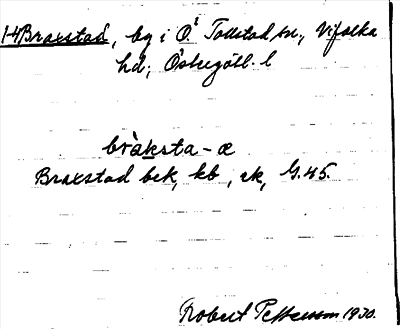 1-4 Braxstad, by i Ö. Tollstad sn., Vifolka
hd; Östergötl. l
bràksta-æ
Braxstad bek, kb, ek, G.45.
Robert Pettersson 1930.